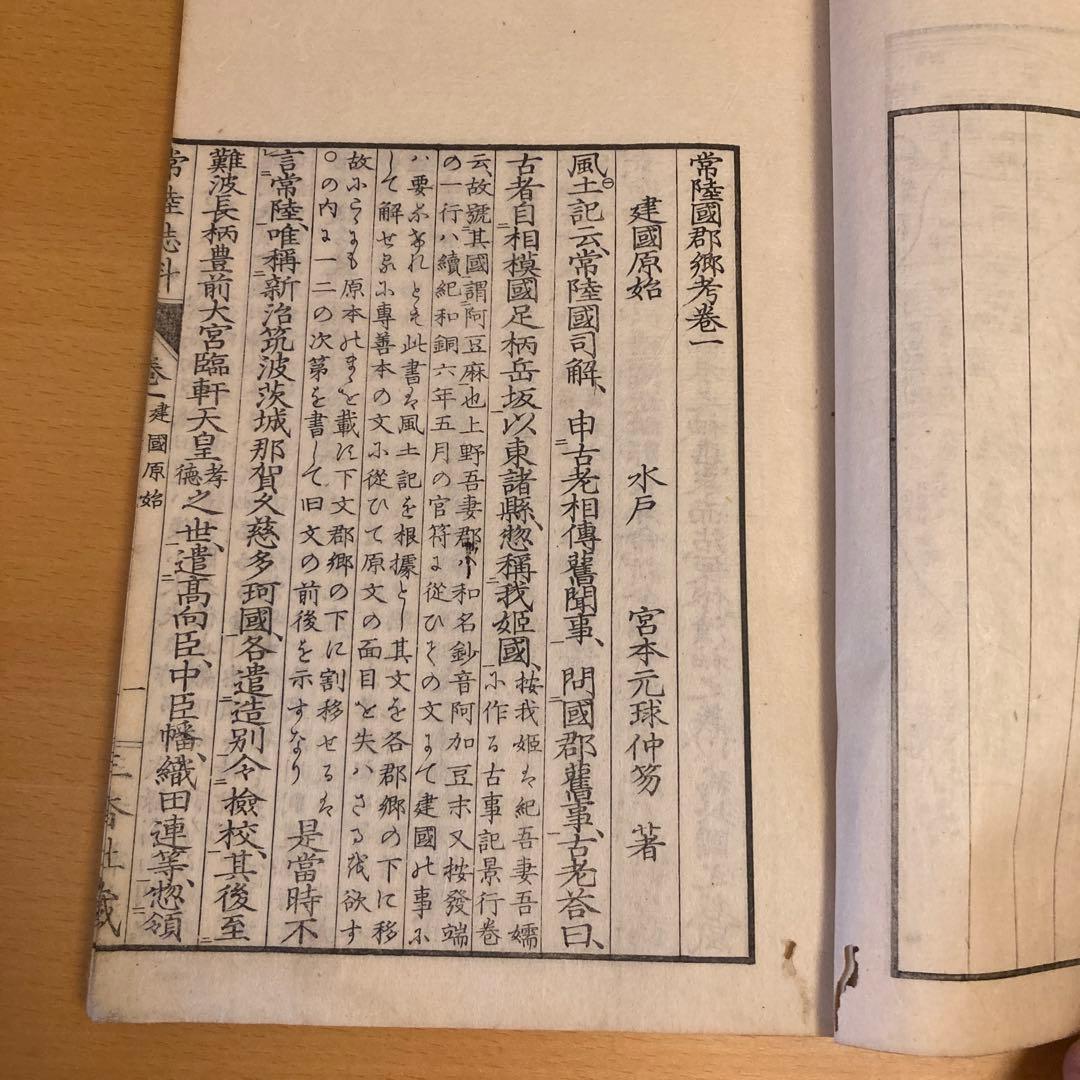 常陸國郡郷考巻一
建國原始　水戸　宮本元球仲笏　著
風土記云、常陸國司解、申古老相傳舊聞事、問國郡舊事、古老荅曰、
古者自相模國足柄岳坂以東諸縣、惣稱我姫國、按我姫ハ紀吾妻吾嬬
に作る古事記景行巻
云故號其國謂阿豆麻也上野吾妻郡ハ和名鈔音阿加豆末又按發端
の一行ハ續紀和銅六年五月の官符に従ひその文にて建國の事に
ハ要なけれとも此書ハ風土記を根據とし其文を各郡郷の下に移
して解せるに專善本の文に従ひて原文の面目を失ハさるを欲す
故にこゝにも原本のまゝを載に下文郡郷の下に割移せるハ
〇の内に一二の次第を書して旧文の前後を示すなり
是當時不
言常陸、唯稱新治筑波茨城那賀久慈多珂國、各遣造別令撿校、其後至
難波長柄豊前大宮臨軒天皇孝德之世、遣高向臣、中臣幡織田連等、惣領
常陸志料　巻一　建國原始　一